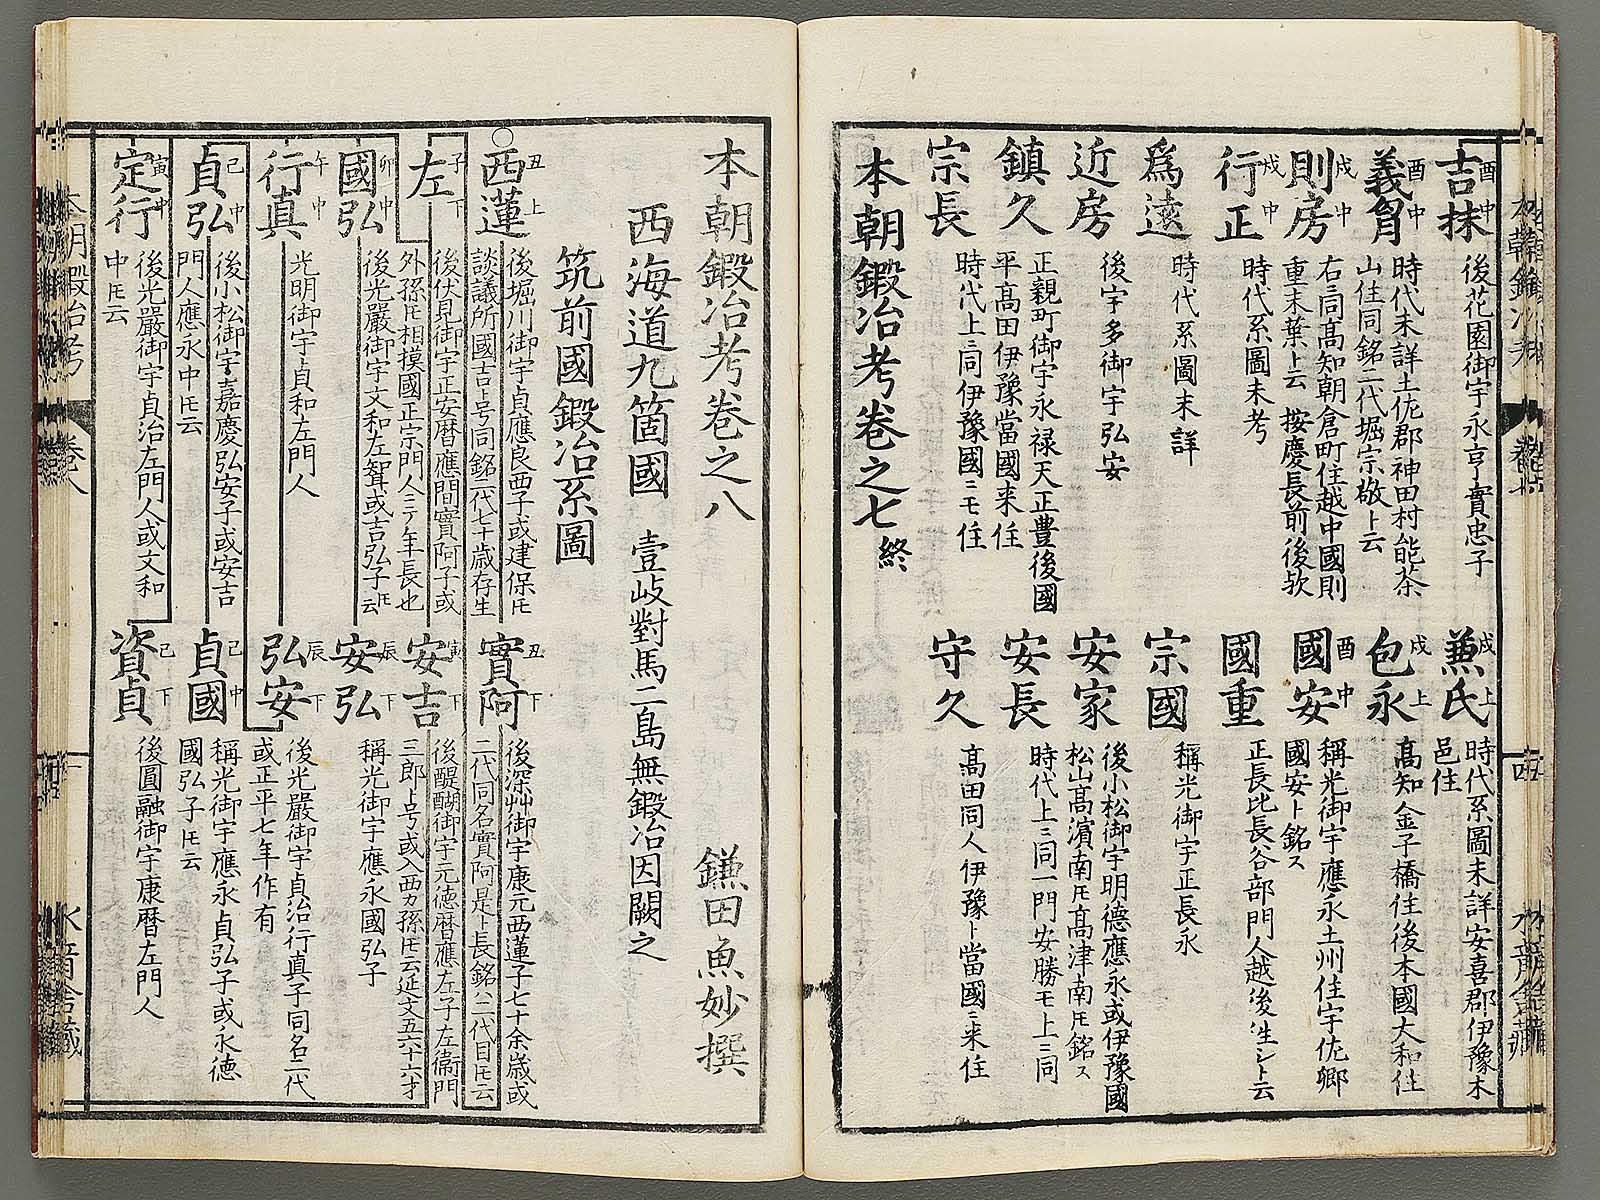 吉抹 酉中 後花園御宇永亨實忠子
義胷 酉中 時代未詳土佐郡神田村能茶
山住同銘二代堀宗敬ト云
則房 戌中 右ニ同高知朝倉町住越中國則
重末葉ト云 按慶長前後欤
行正 戌中 時代系圖未考
爲遠 時代系圖未詳
近房 後宇多御宇弘安
鎮久 正親町御宇永禄天正豊後國
平高田伊豫當國来住
宗長 時代上ニ同伊豫國ニモ住
兼氏 戌上 時代系圖未詳安喜郡伊豫木
邑住
包永 戌上 高知金子橋住後本國大和住
國安 酉中 稱光御宇應永土州住宇佐郷
國安ト銘ス
國重 正長比長谷部門人越後ニ生シト云
宗國 稱光御宇正長永
安家 後小松御宇明德應永或伊豫國
松山高濵南𪜈高津南𪜈銘ス
安長 時代上ニ同一門安勝モ上ニ同
守久 高田同人伊豫ト當國ニ来住
本朝鍛冶考巻之七終
本朝鍛冶考巻之八
鎌田魚妙撰
西海道九箇國 壹岐對馬二島無鍛冶因闕之
筑前國鍛冶系圖
西蓮 丑上 後堀川御宇貞應良西子或建保𪜈
談議所國吉ト号同銘二代七十歳存生
實阿 丑下 後深艸御宇康元西蓮子七十余歳或
二代同名實阿是ト長銘ハ二代目𪜈云
左 子下 後伏見御宇正安暦應間實阿子或
外孫𪜈相摸國正宗門人三テ年長也
安吉 寅下 後醍醐御宇元德暦應左子左衞門
三郎ト号或入西カ孫𪜈云延文五六十六才
國弘 卯中 後光嚴御宇文和左聟或吉弘子𪜈云
安弘 辰下 稱光御宇應永國弘子
行真 午中 光明御宇貞和左門人
弘安 辰下 後光嚴御宇貞治行真子同名二代
或正平七年作有
貞弘 己中 後小松御宇嘉慶弘安子或安吉
門人應永中𪜈云
貞國 己中 稱光御宇應永貞弘子或永徳
國弘子𪜈云
定行 寅中 後光嚴御宇貞治左門人或文和
中𪜈云
資貞 己下 後圓融御宇康暦左門人